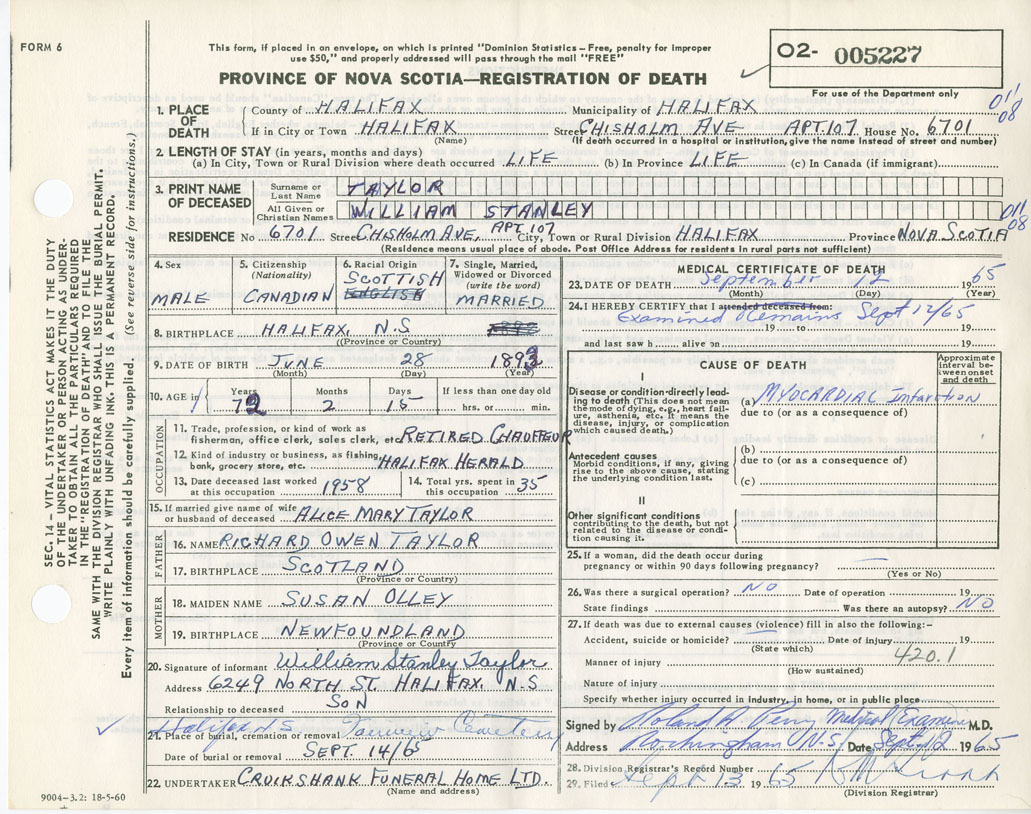 FORM 6
This form, if placed in an envelope, on which is printed "Dominion Statistics – Free, penalty for improper
use $50," and properly addressed will pass through the mail "FREE"
PROVINCE OF NOVA SCOTIA—REGISTRATION OF DEATH
O2- 005227
For use of the Department only
SEC. 14 – VITAL STATISTICS ACT MAKES IT THE DUTY
OF THE UNDERTAKER OR PERSON ACTING AS UNDER-
TAKER TO OBTAIN ALL THE PARTICULARS REQUIRED
IN THE "REGISTRATION OF DEATH" AND TO FILE THE
SAME WITH THE DIVISION REGISTRAR WHO SHALL ISSUE THE BURIAL PERMIT.
WRITE PLAINLY WITH UNFADING INK. THIS IS A PERMANENT RECORD.
Every item of information should be carefully supplied. (See reverse side for instructions.)
1. PLACE OF DEATH
County of HALIFAX Municipality of HALIFAX
011/08
If in City or Town HALIFAX Street CHISHOLM AVE APT.107 House No. 6701
(Name) (If death occurred in a hospital or institution, give the name instead of street and number)
2. LENGTH OF STAY (in years, months and days)
(a) In City, Town or Rural Division where death occurred LIFE (b) In Province LIFE (c) In Canada (if immigrant)
3. PRINT NAME OF DECEASED
Surname or Last Name TAYLOR
All Given or Christian Names WILLIAM STANLEY
011/08
RESIDENCE No 6701 Street CHISHOLM AVE, APT.107 City, Town or Rural Division HALIFAX Province NOVA SCOTIA
(Residence means usual place of abode. Post Office Address for residents in rural parts not sufficient)
4. Sex MALE
5. Citizenship (Nationality) CANADIAN
6. Racial Origin SCOTTISH ENGLISH
7. Single, Married, Widowed or Divorced (write the word) MARRIED
8. BIRTHPLACE HALIFAX, N.S
(Province or Country)
9. DATE OF BIRTH JUNE 28 1893
(Month) (Day) (Year)
10. AGE in Years 72 Months 2 Days 15 If less than one day old hrs. or min.
OCCUPATION
11. Trade, profession, or kind of work as
fisherman, office clerk, sales clerk, etc. RETIRED CHAUFFEUR
12. Kind of industry or business, as fishing,
bank, grocery store, etc. HALIFAX HERALD
13. Date deceased last worked at this occupation 1958
14. Total yrs. spent in this occupation 35
15. If married give name of wife
or husband of deceased ALICE MARY TAYLOR
FATHER
16. NAME RICHARD OWEN TAYLOR
17. BIRTHPLACE SCOTLAND
(Province or Country)
MOTHER
18. MAIDEN NAME SUSAN OLLEY
19. BIRTHPLACE NEWFOUNDLAND
(Province or Country)
20. Signature of informant William Stanley Taylor
Address 6249 NORTH ST. HALIFAX. N.S
Relationship to deceased SON
Halifax N S Fairview Cemetery
21. Place of burial, cremation or removal
Date of burial or removal SEPT. 14/65
22. UNDERTAKER CRUIKSHANK FUNERAL HOME LTD.
(Name and address)
9004–3.2: 18-5-60
MEDICAL CERTIFICATE OF DEATH
23. DATE OF DEATH September 12 1965
(Month) (Day) (Year)
24. I HEREBY CERTIFY that I attended deceased from:
Examined Remains Sept 12/65
19 to 19
and last saw h alive on 19
CAUSE OF DEATH
Approximate interval between onset and death
I
Disease or condition directly leading to death (This does not mean the mode of dying, e.g., heart failure, asthenia, etc. It means the disease, injury, or complication which caused death.)
(a) MYOCARDIAL Infarction
due to (or as a consequence of)
Antecedent causes
Morbid conditions, if any, giving rise to the above cause, stating the underlying condition last.
(b)
due to (or as a consequence of)
(c)
II
Other significant conditions
contributing to the death, but not related to the disease or condition causing it.
25. If a woman, did the death occur during
pregnancy or within 90 days following pregnancy?
(Yes or No)
26. Was there a surgical operation? NO Date of operation 19
State findings Was there an autopsy? NO
27. If death was due to external causes (violence) fill in also the following:–
Accident, suicide or homicide? Date of injury 19
(State which) 420.1
Manner of injury
(How sustained)
Nature of injury
Specify whether injury occurred in industry, in home, or in public place
Signed by Roland A Perry Medical Examiner M.D.
Address Rockingham N.S. Date Sept 12 1965
28. Division Registrar's Record Number
29. Filed Sept 13 1965
(Division Registrar)